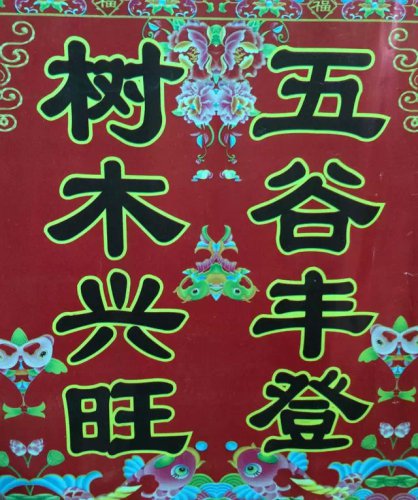 福 福
五谷丰登
树木兴旺